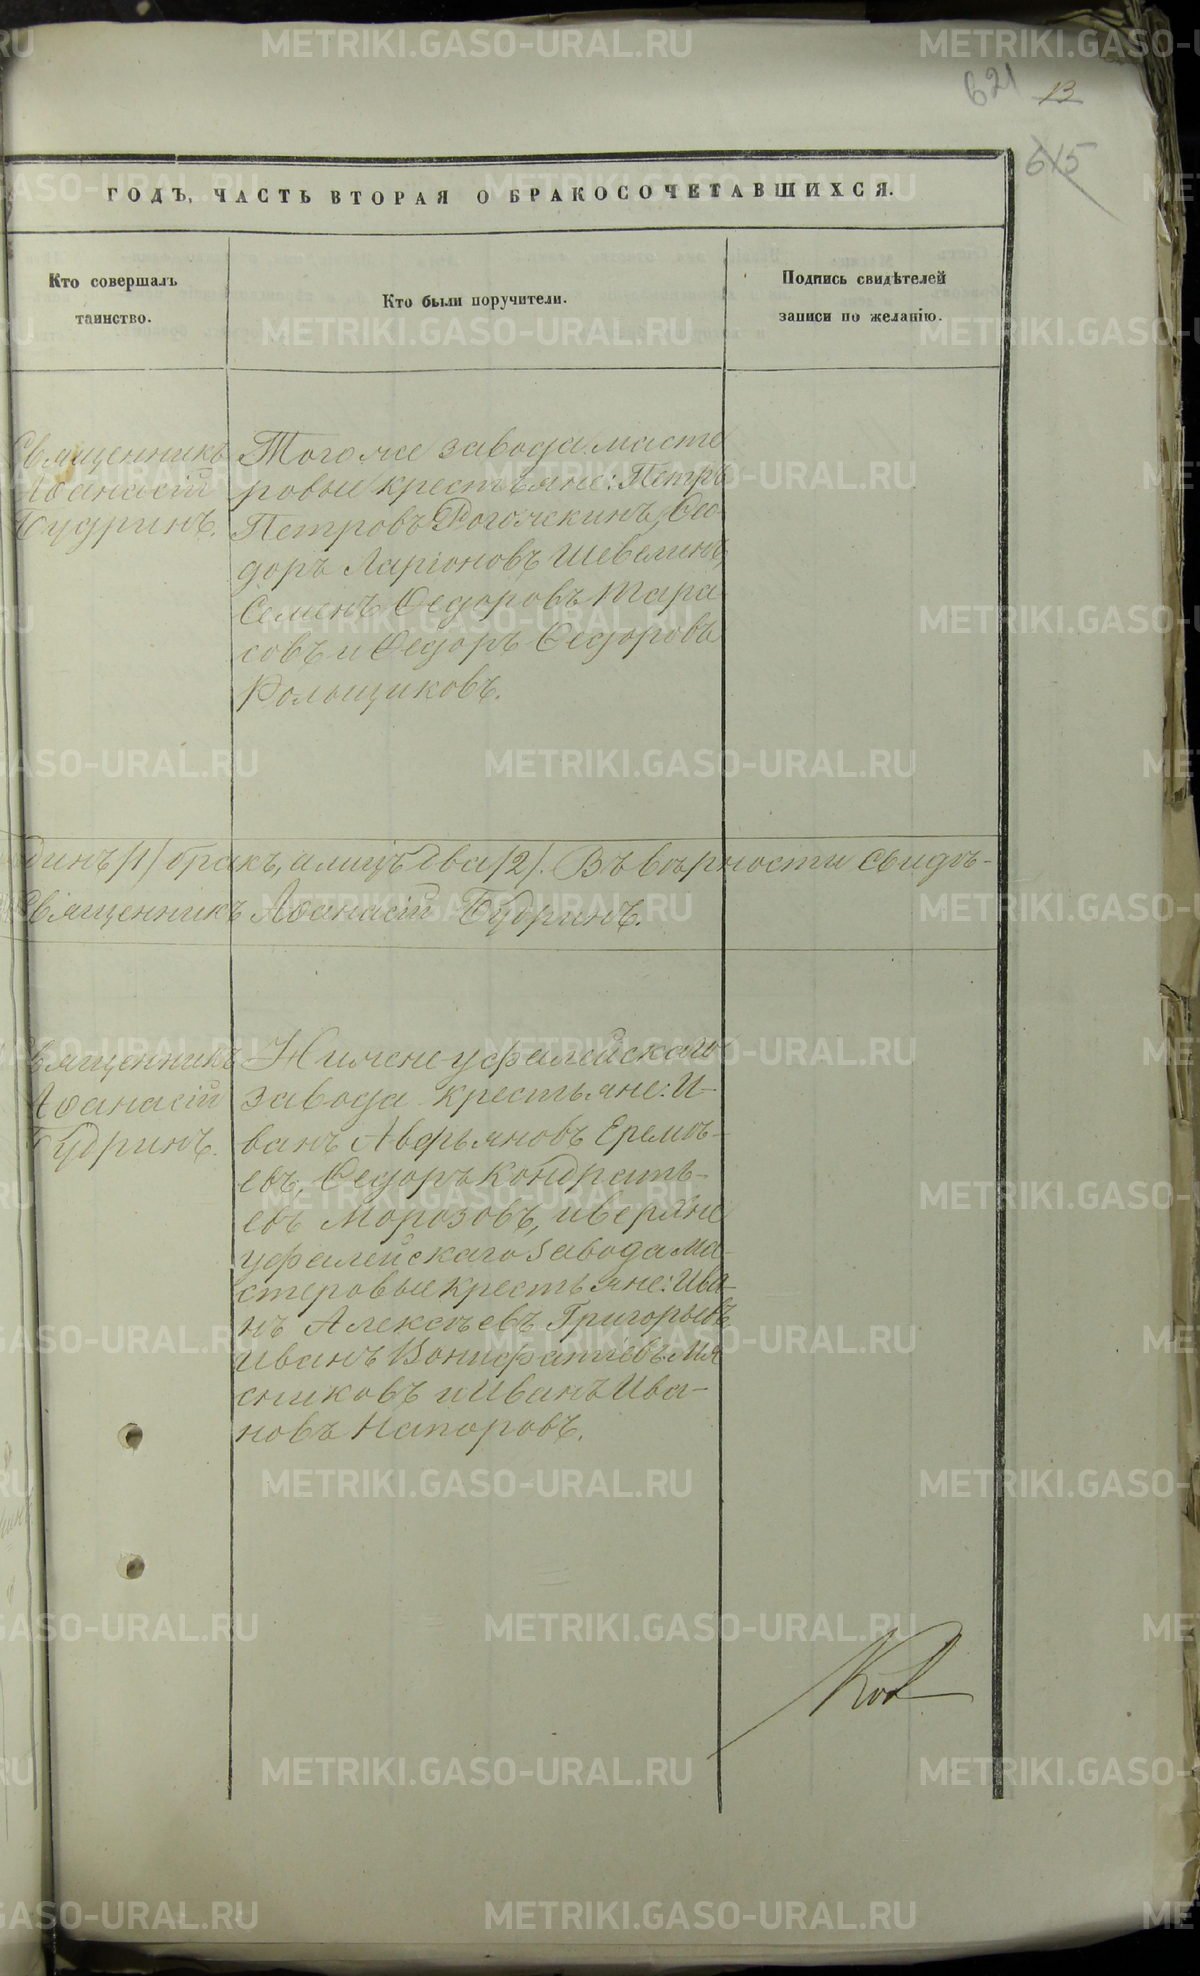 621 13
615
ГОДЪ, ЧАСТЬ ВТОРАЯ О БРАКОСОЧЕТАВШИХСЯ.
Кто совершалъ
таинство.
Кто были поручители.
Подпись свидѣтелей
записи по желанію.
Священникъ
Аѳанасій
Будринъ.
Тогоже завода масте
ровые крестьяне: Петръ
Петровъ Рогожкинъ, Ѳео
доръ Ларіоновъ Шевелинъ,
Семенъ Ѳедоровъ Тара
совъ и Ѳедоръ Ѳедоровъ
Рольщиковъ.
динъ /1/ бракъ, а лицъ два /2/. Въ вѣрности свидѣ-
Священникъ Аѳанасій Будринъ.
Священникъ
Аѳанасій
Будринъ.
Нижнеуфалейскаго
завода крестьяне: И-
ванъ Аверьяновъ Еремѣ-
евъ, Ѳедоръ Кондрать-
евъ Морозовъ, и верхне
уфалейскаго завода ма-
стеровые крестьяне: Ива-
нъ Алексѣевъ Григорьевъ
Иванъ Вонифатіевъ Мя
сниковъ и Иванъ Ива-
новъ Напоровъ.
METRIKI.GASO-URAL.RU